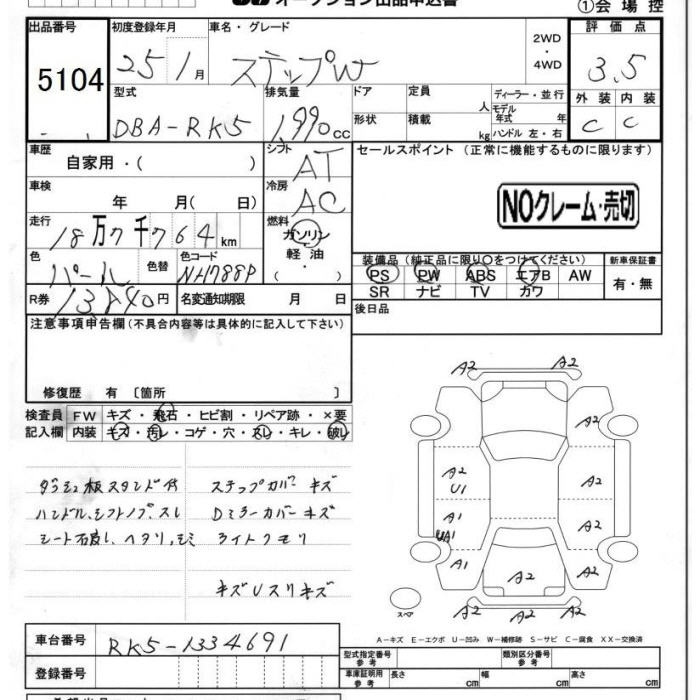 オークション出品申込書
①会場控
出品番号 初度登録年月 車名・グレード 評価点
5104 25 1月 ステップW 2WD・4WD 3.5
型式 排気量 ドア 定員 人 ディーラー・並行 外装 内装
DBA-RK5 1,990cc 形状 積載 kg モデル年式 年 ハンドル 左・右 C C
車歴 シフト セールスポイント (正常に機能するものに限ります)
自家用・( ) AT
車検 冷房
年 月( 日) AC NOクレーム・売切
走行 燃料
18万7千764km ガソリン・軽油・( )
色 色替 色コード 装備品(純正品に限り○をつけてください) 新車保証書
パール NH788P PS PW ABS エアB AW 有・無
SR ナビ TV カワ
R券 13,840円 名変通知期限 月 日 後日品
注意事項申告欄(不具合内容等は具体的に記入して下さい)
修復歴 有 〔箇所 〕
検査員 FW キズ・飛石・ヒビ割・リペア跡・×要
記入欄 内装 キズ・汚レ・コゲ・穴・スレ・キレ・破レ
ダッシュ板スタンド付 ステップカバーキズ
ハンドル、シフトノブ、スレ Dミラーカバーキズ
ライトクモリ
キズUスリキズ
A2 A2
A2
A2 U1 A2
A1 A2
A1 A2 A2
A2 A2 A2
スペア
車台番号 RK5-1334691
A-キズ E-エクボ U-凹み W-補修跡 S-サビ C-腐食 XX-交換済
登録番号
型式指定番号 参考 類別区分番号 参考
車庫証明用 参考 長さ cm 幅 cm 高さ cm